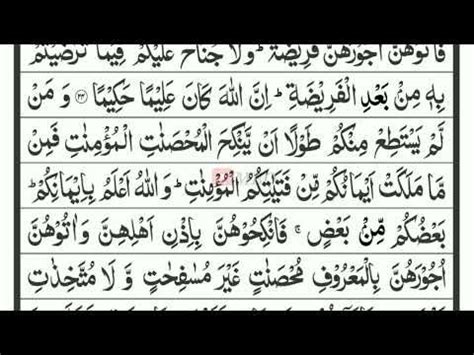 فَاٰتُوْهُنَّ اُجُوْرَهُنَّ فَرِيْضَةً ؕ وَلَا جُنَاحَ عَلَيْكُمْ فِيْمَا تَرٰضَيْتُمْ
بِهٖ مِنْۢ بَعْدِ الْفَرِيْضَةِ ؕ اِنَّ اللّٰهَ كَانَ عَلِيْمًا حَكِيْمًا ﴿۲۴﴾ وَ مَنْ
لَّمْ يَسْتَطِعْ مِنْكُمْ طَوْلًا اَنْ يَّنْكِحَ الْمُحْصَنٰتِ الْمُؤْمِنٰتِ فَمِنْ
مَّا مَلَكَتْ اَيْمَانُكُمْ مِّنْ فَتَيٰتِكُمُ الْمُؤْمِنٰتِ ؕ وَاللّٰهُ اَعْلَمُ بِاِيْمَانِكُمْ ؕ
بَعْضُكُمْ مِّنْۢ بَعْضٍ ۚ فَانْكِحُوْهُنَّ بِاِذْنِ اَهْلِهِنَّ وَاٰتُوْهُنَّ
اُجُوْرَهُنَّ بِالْمَعْرُوْفِ مُحْصَنٰتٍ غَيْرَ مُسٰفِحٰتٍ وَّ لَا مُتَّخِذٰتِ